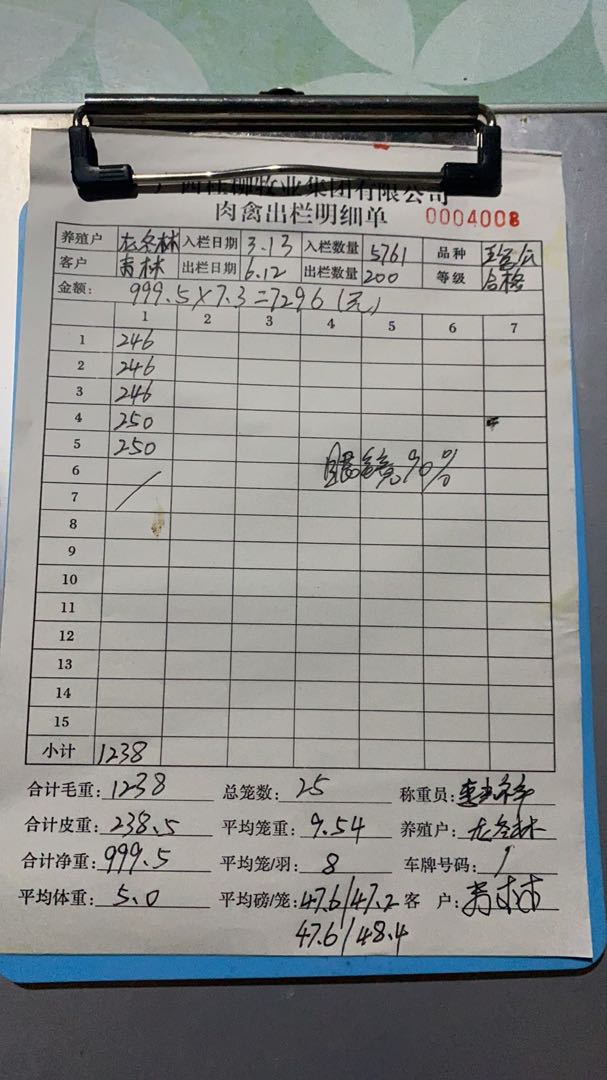 牧业集团有限公司
肉禽出栏明细单 0004008
养殖户 入栏日期 3.13 入栏数量 5761 品种
客户 林 出栏日期 6.12 出栏数量 200 等级 合格
金额: 999.5×7.3=7296(元)
1 2 3 4 5 6 7
1 246
2 246
3 246
4 250
5 250
6 90%
7
8
9
10
11
12
13
14
15
小计 1238
合计毛重: 1238 总笼数: 25 称重员:
合计皮重: 238.5 平均笼重: 9.54 养殖户:
合计净重: 999.5 平均笼/羽: 8 车牌号码: /
平均体重: 5.0 平均磅/笼: 47.6/47.2 客 户: 林
47.6/48.4